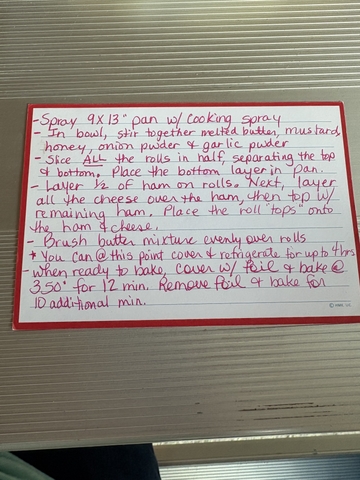 - Spray 9x13" pan w/ cooking spray
- In bowl, stir together melted butter, mustard,
honey, onion pwder & garlic pwder
- Slice ALL the rolls in half, separating the top
& bottom. Place the bottom layer in pan.
- Layer 1/2 of ham on rolls. Next, layer
all the cheese over the ham, then top w/
remaining ham. Place the roll "tops" onto
the ham & cheese.
- Brush butter mixture evenly over rolls
* You can @ this point cover & refrigerate for up to 4 hrs
- when ready to bake, cover w/ foil & bake @
350° for 12 min. Remove foil & bake for
10 additional min.